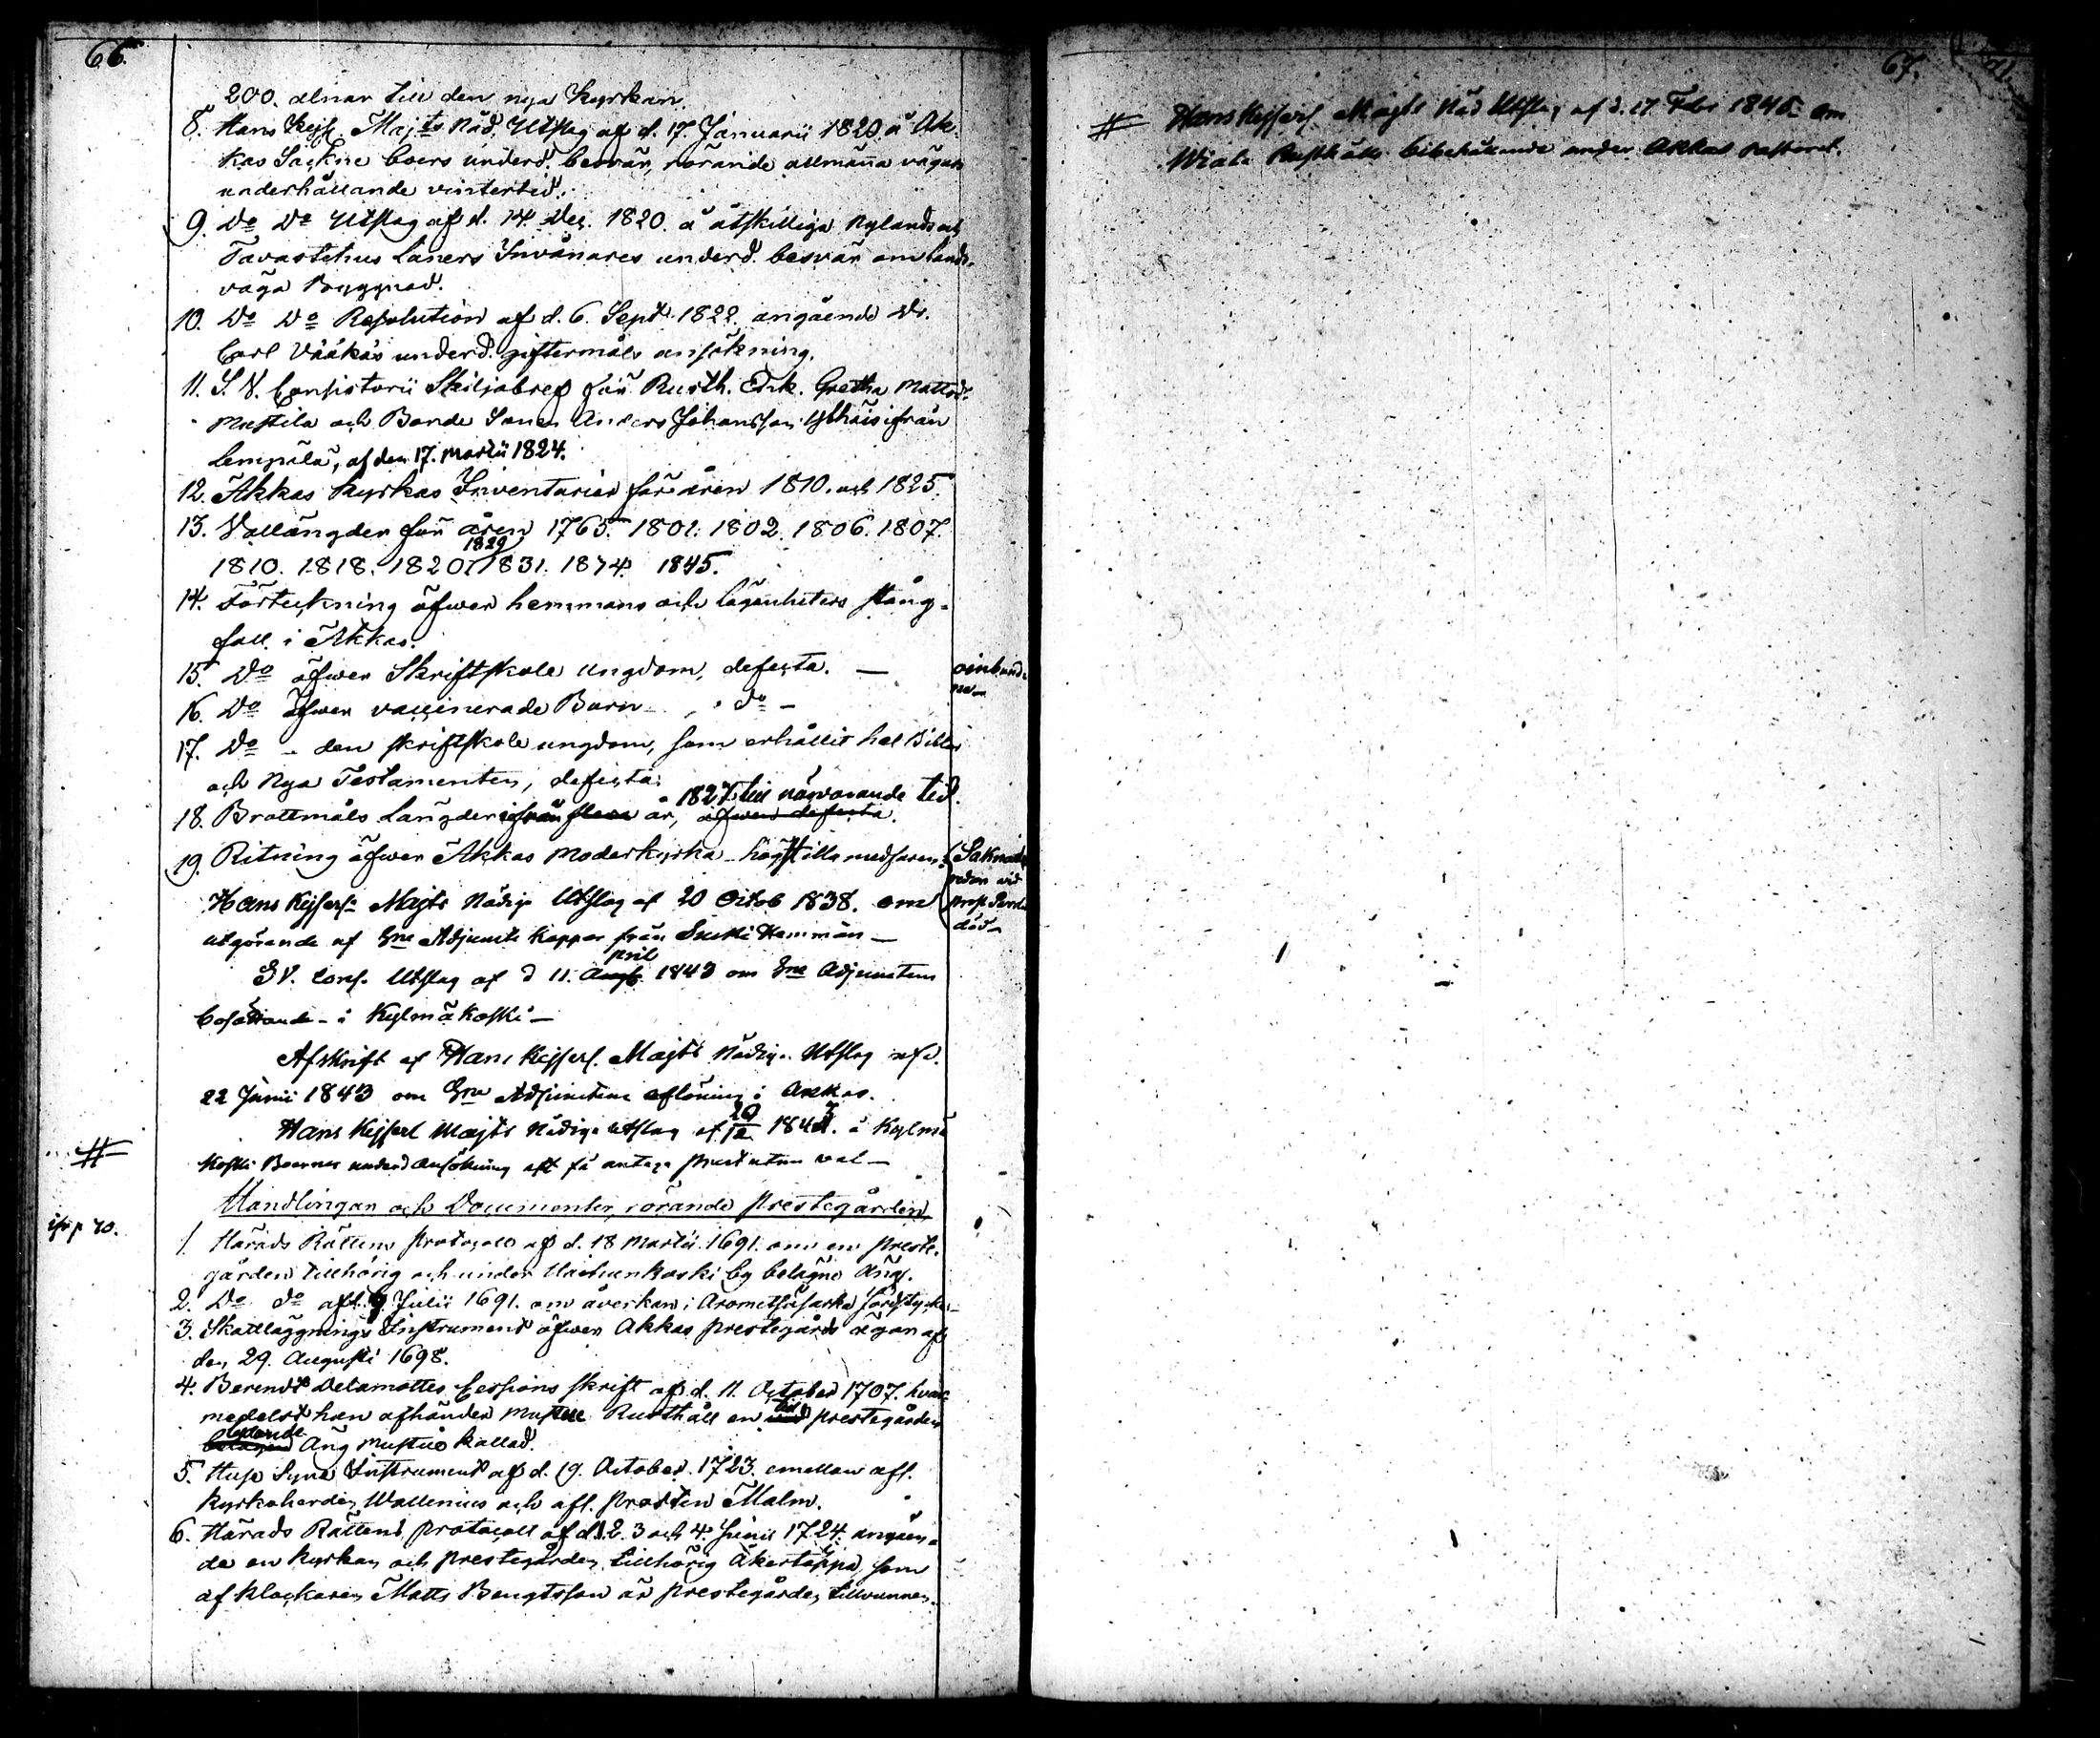 66.
200. alnar till den nya Kyrkan.
8. Hans Kejs. Maj:ts Nåd. Utslag af d. 17. Januarii 1820. å Ak-
kas Sockne boers underd. besvär, rörande allmänna vägars
underhållande vintertid.
9. Do Do Utslag af d. 14. Dec. 1820. å åtskillige Nylands och
Tavastehus Läners Invånares underd. besvär om lands-
väga Byggnad.
10. Do Do Resolution af d. 6. Sept. 1822. angående Dr.
Carl Vääkäs underd. giftermåls ansökning.
11. S. V. Consistorii Skiljobref för Rusth. Enk. Gretha Mattsd.
Mustila och Bonde Sonen Anders Johansson ifrån
Lempälä, af den 17. Martii 1824.
12. Akkas Kyrkas Inventarier för åren 1810. och 1825.
13. Vallängder för åren 1765. 1801. 1802. 1806. 1807.
1810. 1818. 1820. 1829 1831. 1874. 1845.
14. Förteckning öfwer hemmans och lägenheters stång-
fall i Akkas.
15. Do öfwer Skriftskole ungdom, defecta. — oinbund-
ne —
16. Do öfwer vaccinerade Barn - , do -
17. Do - den skriftskole ungdom, som erhållit hel Bibel
och Nya Testamenten, defecta.
18. Brottmåls Längder ifrån flera år, 1827 till närvarande tid. äfwen defecta.
19. Ritning öfwer Akkas Moderkyrka - högst illa medfaren. (Saknades
redan vid
prosten
död -
Hans Kejserl. Majts Nådige Utslag af 20 Octob 1838. om
utgörande af Gne Adjuncts Kappar från Hemman —
S V. Cons. Utslag af d 11. Aug pril 1843 om Gne Adjunctens
boställande - i Kylmäkoski —
Afskrift af Hans Kejserl. Majts Nådige Utslag af d.
22 Junii 1843 om Gne Adjunctens aflöning i Akkas.
Hans Kejserl Majts Nådige Utslag af 20/12 1843. å Kylmä
koski Boernes underd ansökning att få antaga Prest utan val —
#
Handlingar och Documenter, rörande prestegården,
ifr p 70.
1. Härads Rättens Protocoll af d. 18 Martii 1691. om en preste-
gården tillhörig och under Uachunkoski by belägne Äng.
2. Do do af d. 9 Julii 1691. om åverkan i jordstycke -
3. Skattläggnings Instrument öfwer Akkas prestegårds ägor af
den 29. Augusti 1698.
4. Berendt Delamottes Cessions skrift af d. 11. October 1707. hvar-
medelst han afhänder Mustila Rusthåll en vid till prestegården
belägen lydande Äng Mustiö kallad.
5. Huse Syne Instrument af d. 19. October. 1723. emellan afl.
kyrkoherden Wallenius och afl. prosten Malm.
6. Härads Rättens protocoll af d. 2. 3 och 4. Junii 1724. angåen-
de en kyrkan och prestegården tillhörig åkertäppa, som
af klockaren Matts Bengtsson är prestegården tillvunnen.
67.
71.
# Hans Kejserl. Majts Nåd Utslag af d. 17 Febr 1845 om
Wiala Rusthålls bibehållande under Akkas Pastorat.